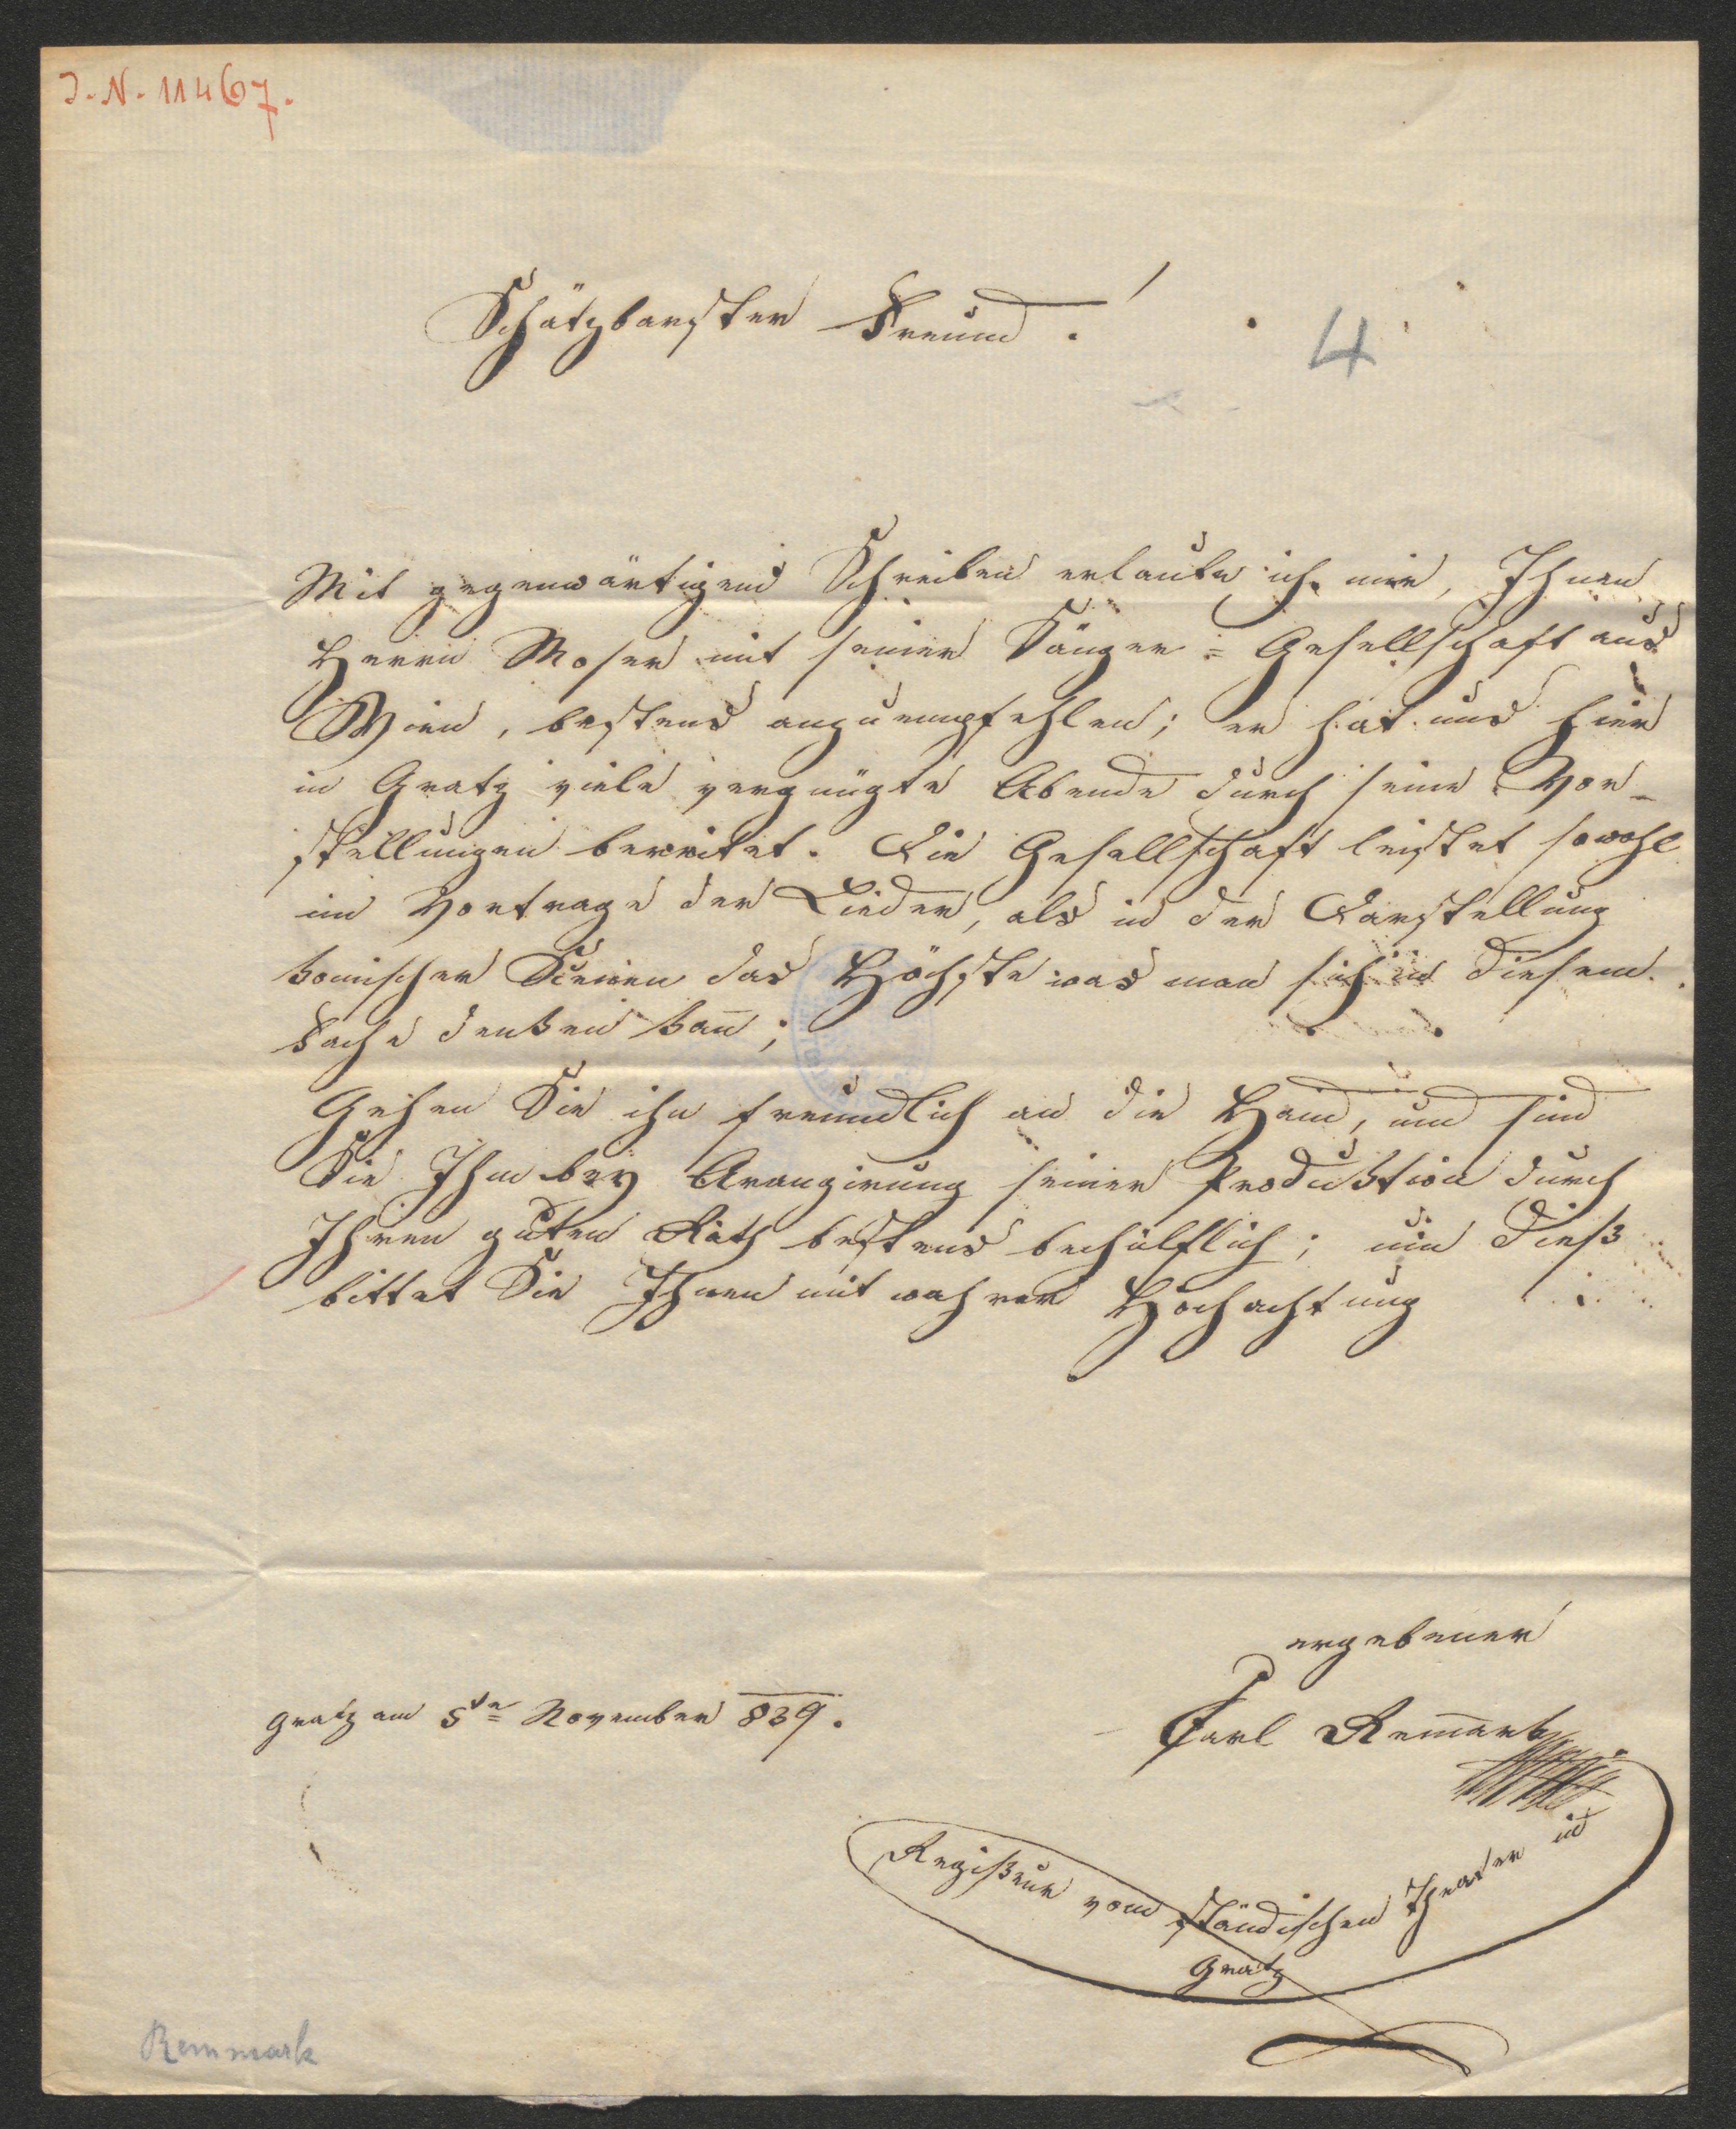 J.-N. 11467.
Schätzbarster Freund!
4
Mit gegenwärtigem Schreiben erlaube ich mir, Ihnen
Herrn Moser mit seiner Sänger=Gesellschaft aus
Wien, bestens anzuempfehlen; er hat uns hier
in Gratz viele vergnügte Abende durch seine Vor-
stellungen bereitet. Die Gesellschaft leistet sowohl
im Vortrage der Lieder, als in der Darstellung
komischer Scenen das Höchste was man sich in diesem
Fache denken kañ;
Gehen Sie ihm freundlich an die Hand, und sind
Sie Ihm bey Arangirung seiner Produktion durch
Ihren guten Rath bestens behülflich; um dieß
bittet Sie Ihnen mit wahrer Hochachtung
ergebener
Gratz am 5tn November 839.
Carl Rem̄ark
Regißeur vom ständischen Theater in
Gratz
Remmark